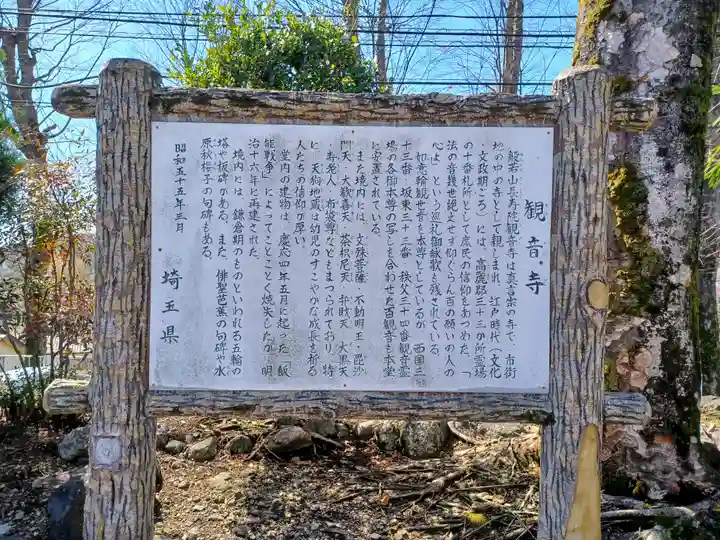 観音寺
般若山長寿院観音寺は真言宗の寺で、市街
地の中の寺として親しまれ、江戸時代(文化
・文政期ごろ)には、高麗郡三十三か所霊場
の十番札所として庶民の信仰をあつめた。「
法の音幾世絶えせず仰ぐらん百の願いの人の
心よ」という巡礼御詠歌も残されている。
如意輪観世音を本尊としているが、西国三
十三番、坂東三十三番、秩父三十四番観音霊
場の各御本尊の写しを合わせた百観音も本堂
に安置されている。
また境内には、文殊菩薩、不動明王、毘沙
門天、大歓喜天、荼枳尼天、弁財天、大黒天
、寿老人、布袋尊などもまつられており、特
に、天狗地蔵は幼児のすこやかな成長を祈る
人たちの信仰が厚い。
堂内の建物は、慶応四年五月に起った「飯
能戦争」によってことごとく焼失したが、明
治十六年に再建された。
境内には、鎌倉期のものといわれる五輪の
塔や板碑がある。また、俳聖芭蕉の句碑や水
原秋桜子の句碑もある。
昭和五十五年三月
埼玉県